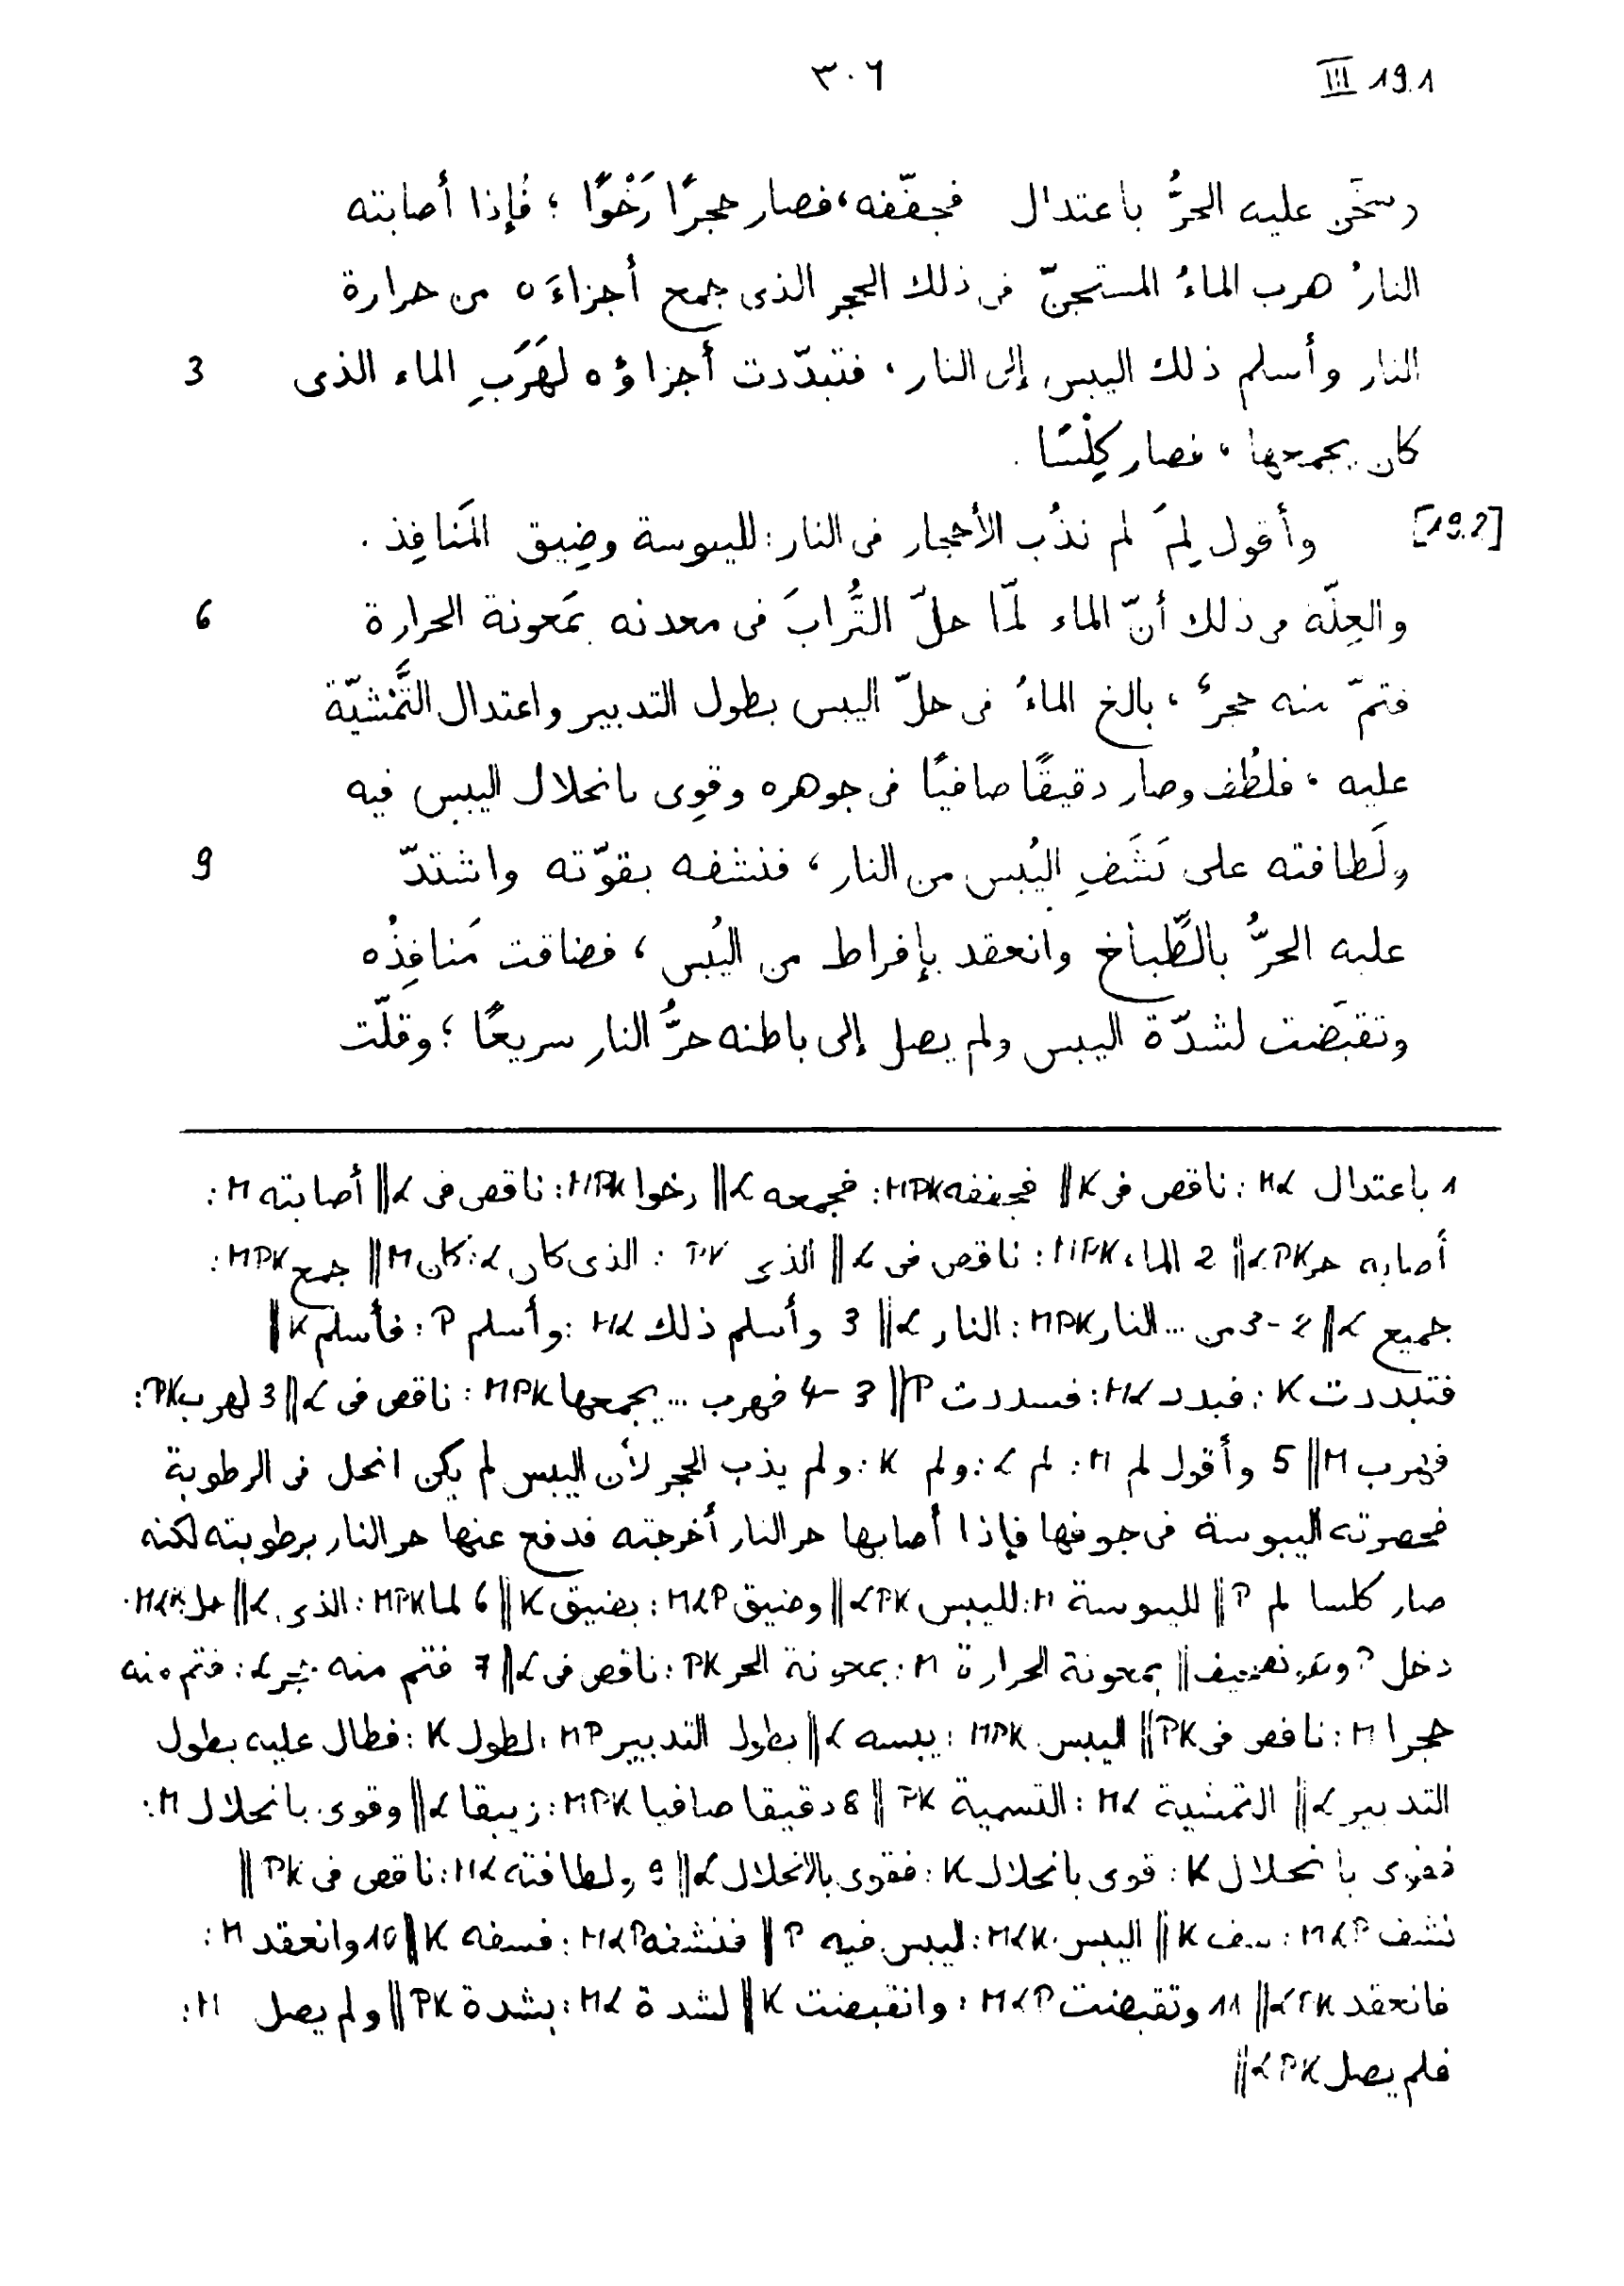 ٣٠٦ III 19.1
وسخَن عليه الحرُّ باعتدال فجفّفه، فصار حجرًا رَخْوًا؛ فإذا أصابته
النارُ هرب الماءُ المستجنّ فى ذلك الحجر الذى جمع أجزاءَه من حرارة
النار وأسلم ذلك اليبس إلى النار، فتبدّدت أجزاؤه لهَرَبِ الماء الذى 3
كان يجمعها، فصار كِلْسًا.
[19.2] وأقول لِمَ لم تذُب الأحجار فى النار: لليبوسة وضِيق المَنافِذ.
والعِلّة فى ذلك أنّ الماء لمّا حلّ التُّرابَ فى معدنه بمَعونة الحرارة 6
فتمّ منه حجرٌ، بالغ الماءُ فى حلّ اليبس بطول التدبير واعتدال التَّمْشيّة
عليه، فلطُف وصار دقيقًا صافيًا فى جوهره وقوِى بانحلال اليبس فيه
ولَطافته على نَشَفِ اليُبس من النار، فنشفه بقوّته واشتدّ 9
عليه الحرُّ بالطَّباخ وانعقد بإفراط من اليُبس، فضاقت مَنافِذُه
وتقبّضت لشدّة اليبس ولم يصل إلى باطنه حرُّ النارِ سريعًا؛ وقلّت
1 باعتدال ML: ناقص فى K || فجففه MPK: فجمعه L || رخوا MPK: ناقص فى L || أصابته M:
أصابه حر LPK || 2 الماء MPK: ناقص فى L || الذى PK: الذى كان L: كان M || جمع MPK:
جميع L || 2-3 من ... النار MPK: النار L || 3 وأسلم ذلك ML: وأسلم P: فأسلم K ||
فتبددت K: فبدد ML: فسددت P || 3-4 فهرب ... يجمعها MPK: ناقص فى L || 3 لهرب PK:
فهرب M || 5 وأقول لم M: لم L: ولم K: ولم يذب الحجر لأن اليبس لم يكن انحل فى الرطوبة
فحصرته اليبوسة فى جوفها فإذا أصابها حر النار أخرجته فدفع عنها حر النار برطوبته لكنه
صار كلسا لم P || لليبوسة M: لليبس LPK || وضيق MLP: بضيق K || 6 لما MPK: الذى L || حل MLK:
دخل P || بمعونة الحرارة M: بمعونة الحر PK: ناقص فى L || 7 فتم منه حجر L: فتم منه
حجرا M: ناقص فى PK || اليبس MPK: يبسه L || بطول التدبير MP: لطول K: فطال عليه بطول
التدبير L || التمشية ML: التسمية PK || 8 دقيقا صافيا MPK: زيبقا L || وقوى بانحلال M:
فقوى بانحلال K: قوى بانحلال K: فقوى بالانحلال L || 9 ولطافته ML: ناقص فى PK ||
نشف MLP: سف K || اليبس MLK: ليبس فيه P || فنشفه MLP: فسفه K || 10 وانعقد M:
فانعقد LPK || 11 وتقبضت MLP: وانقبضت K || لشدة ML: بشدة PK || ولم يصل M:
فلم يصل LPK ||